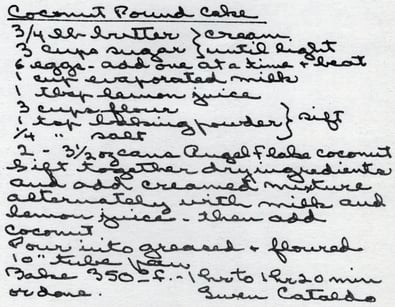 Coconut Pound Cake
3/4 lb butter } cream
3 cups sugar } until light
6 eggs - add one at a time + beat
1 cup evaporated milk
1 tbsp lemon juice
3 cups flour
1 tsp baking powder } sift
1/4 " salt
2 - 3 1/2 oz cans Angel flake coconut
Sift together dry ingredients
and add creamed mixture
alternately with milk and
lemon juice - then add
coconut
Pour into greased + floured
10" tube pan
Bake 350 - f. - 1 hr to 1 hr 20 min
or done. Gwen Cataldo